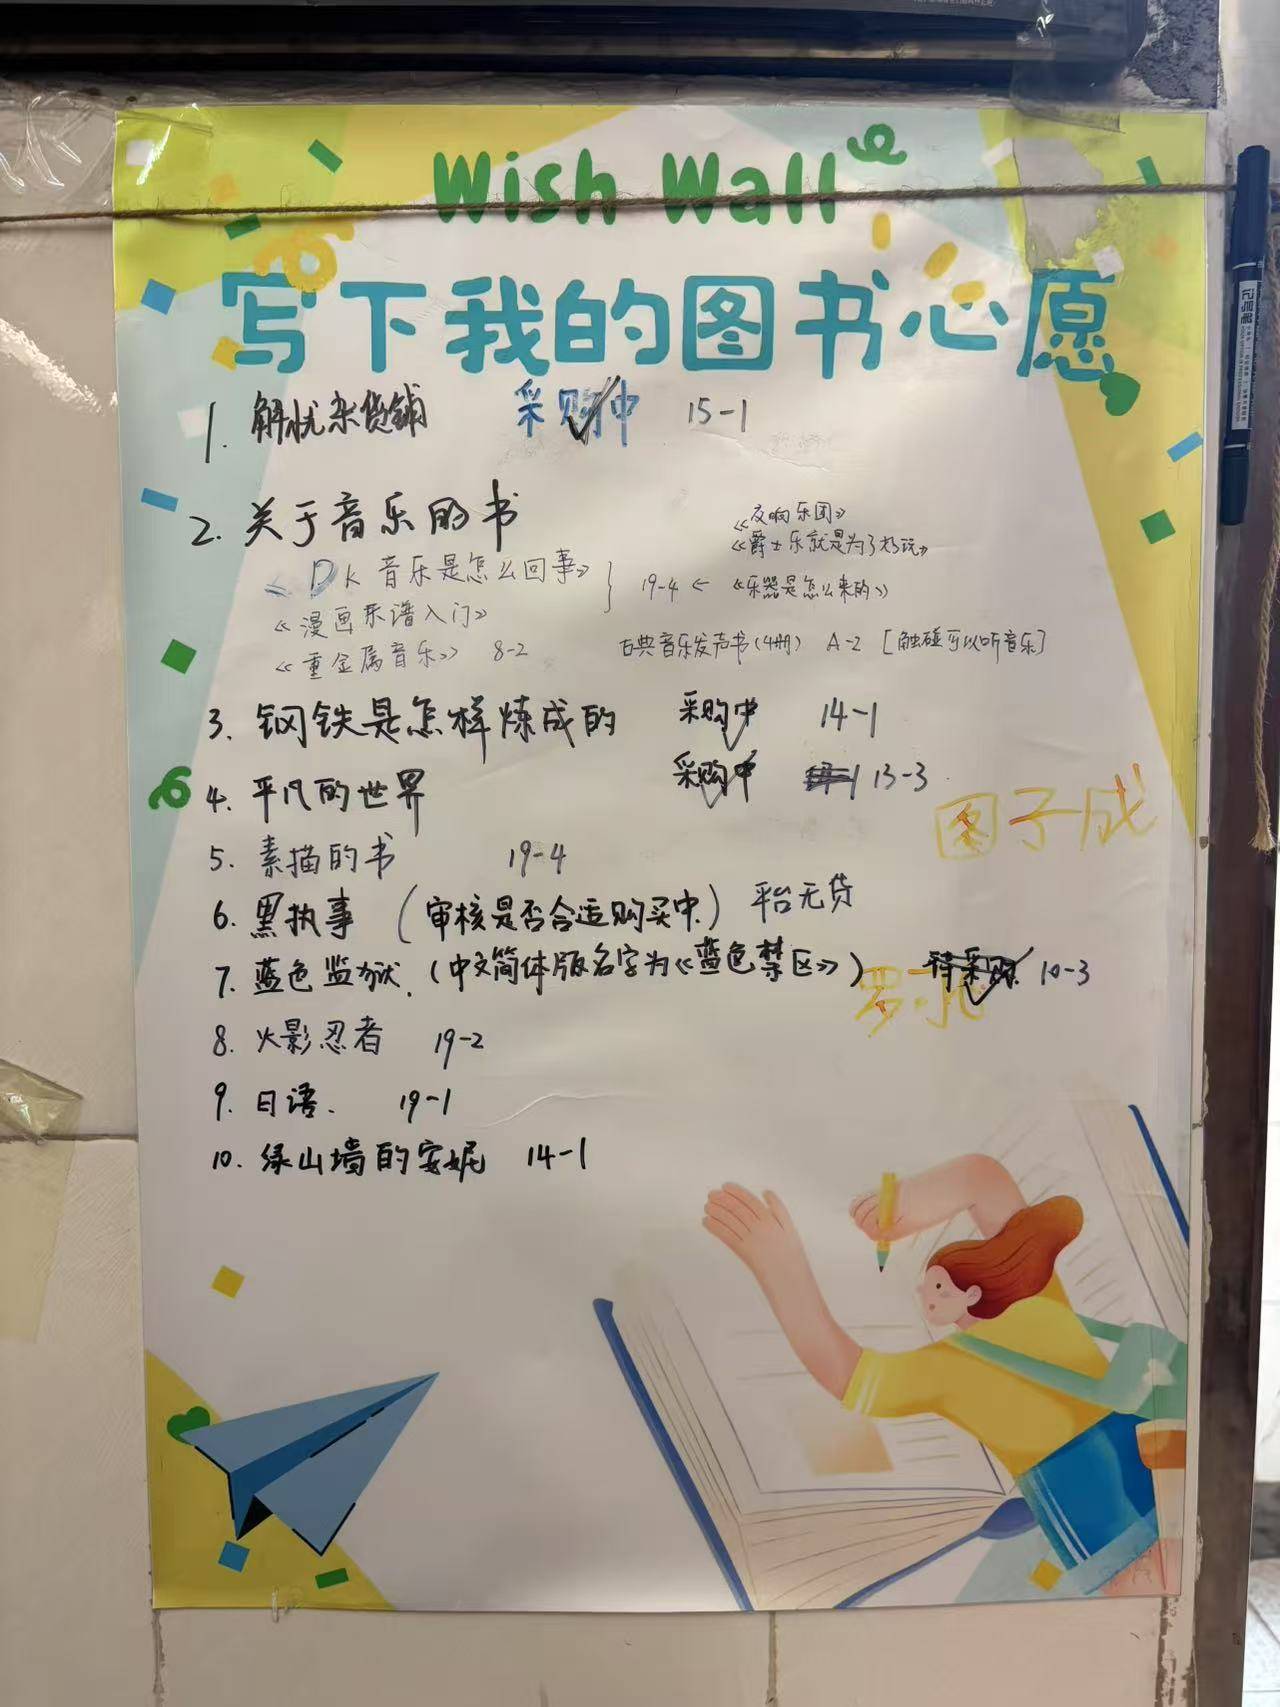 Wish Wall
写下我的图书心愿
1. 解忧杂货铺 采购中 15-1
2. 关于音乐的书
《反响乐团》
《爵士乐就是为了好玩》
《DK 音乐是怎么回事》 19-4 ← 《乐器是怎么来的》
《漫画乐谱入门》
《重金属音乐》 8-2 古典音乐发声书(4册) A-2 [触碰可以听音乐]
3. 钢铁是怎样炼成的 采购中 14-1
4. 平凡的世界 采购中 13-3
5. 素描的书 19-4
6. 黑执事 (审核是否合适购买中) 平台无货
7. 蓝色监狱. (中文简体版名字为《蓝色禁区》) 待采购 10-3
8. 火影忍者 19-2
9. 日语. 19-1
10. 绿山墙的安妮 14-1
记号笔